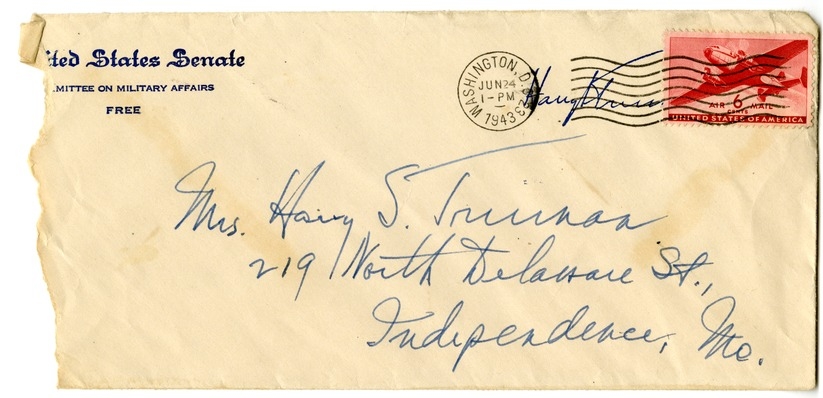 ited States Senate
MMITTEE ON MILITARY AFFAIRS
FREE
WASHINGTON, D.C.
JUN 24
1-PM
1943
AIR 6 MAIL
CENTS
UNITED STATES OF AMERICA
Harry Trum
Mrs. Harry S. Truman
219 North Delaware St.,
Independence, Mo.